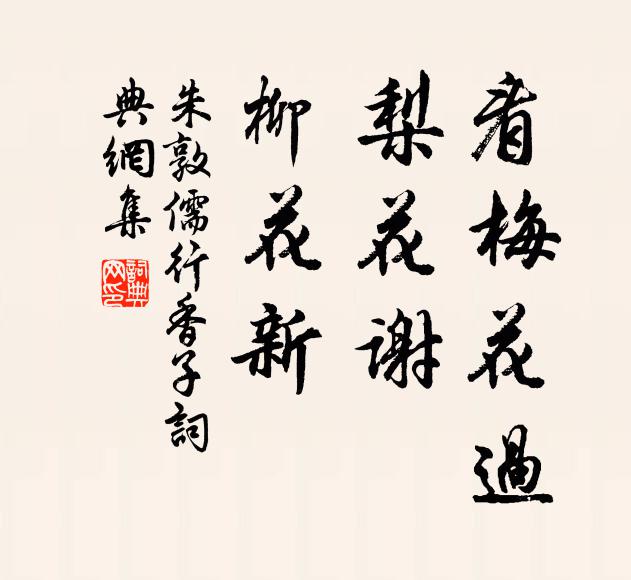 看梅花過
梨花謝
柳花新
朱敦儒行香子詞
典網集
詞典網印